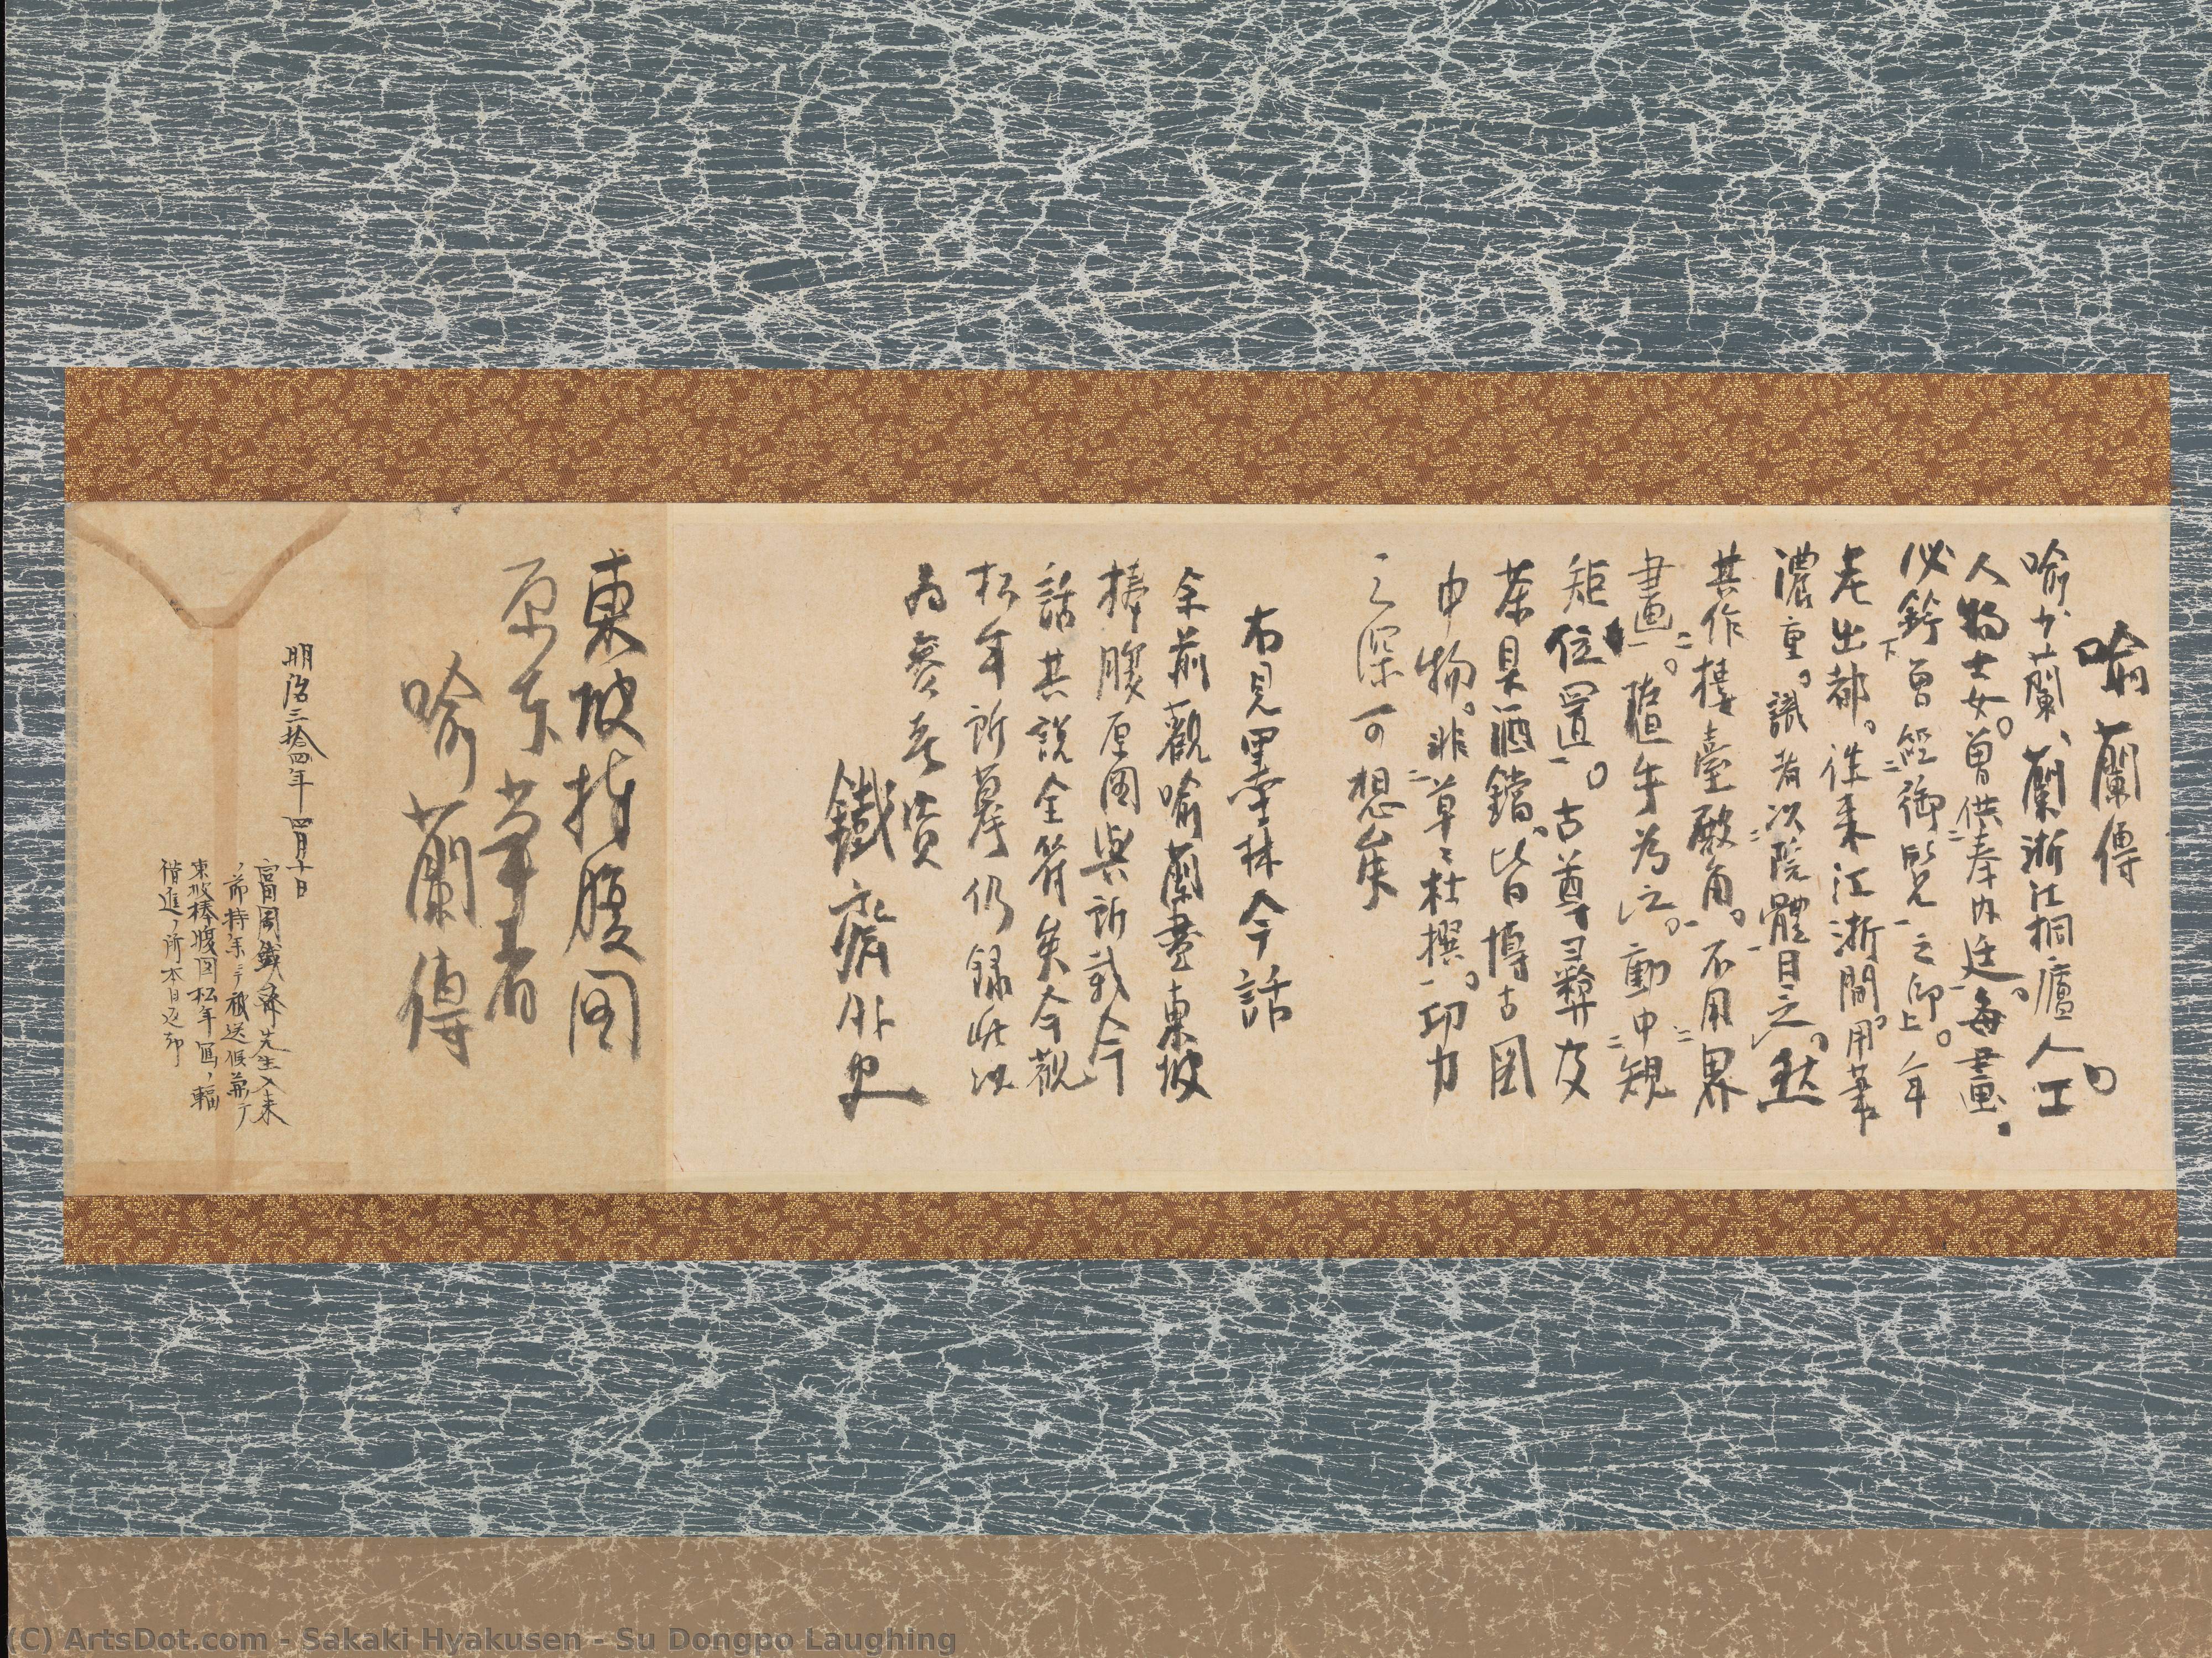 喩蘭傳
喩少蘭、蘭浙江桐廬人。工
人物士女。曽供奉内廷。每畫。
必鈐下曽経二御覧一之印上。年
老出都。徃来江浙間。用筆
濃重。識者以二院體一目之。然
其作樓臺殿角。不用二界
畫一。隨手為之。動中二規
矩一。位置。古尊彛及
茶具酒鐺。皆博古圖
中物。非二草々杜撰一。功力
之深可想矣
右見墨林今話
余前觀喩蘭畫東坡
捧腹原圖與所載今
話其説全符矣今觀
松年所摹仍録此以
為參考資
鐵齋外史
東坡捧腹図
原本筆者
喩蘭傳
明治三拾四年四月十日
富岡鐵齋先生入来
ノ節持参ニテ被送候兼テ
東坡捧腹図松年寫ノ輻
借進ノ所本日返却
(C) ArtsDot.com - Sakaki Hyakusen - Su Dongpo Laughing